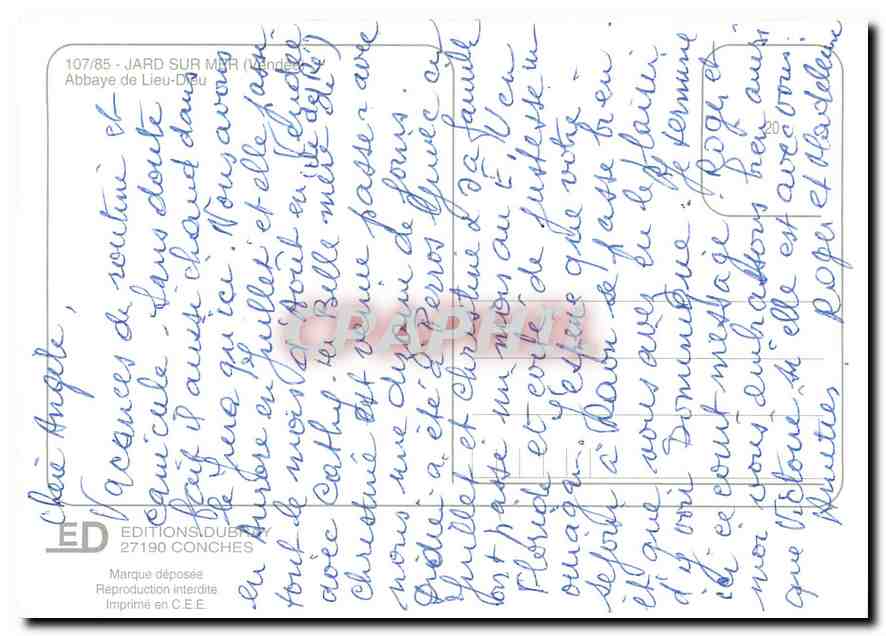 107/85 - JARD SUR MER (Vendée)
Abbaye de Lieu-Dieu
20
Chère Angèle,
Vacances de routine et
canicule. Sans doute
fait il aussi chaud dans
le Jura qu'ici. Nous avons
eu Aurore en Juillet et elle passe
tout le mois d'Août en Vendée
avec Cathy. (sa Belle mère
christine est venue passer avec
nous une dizaine de jours.
Didier a été à Perros Guirec en
Juillet et christine & sa famille
ont passé un mois au E.U en
Floride et évité de justesse un
ouragan. J'espère que votre
séjour à Raon se passe bien
et que vous avez eu le plaisir
d'y voir Dominique. Je termine
ici ce court message. Roger et
moi vous embrassons bien ainsi
que Victoire si elle est avec vous.
Amitiés. Roger et Madeleine
CPAPHIL
ED
EDITIONS DUBRAY
27190 CONCHES
Marque déposée
Reproduction interdite
Imprimé en C.E.E.